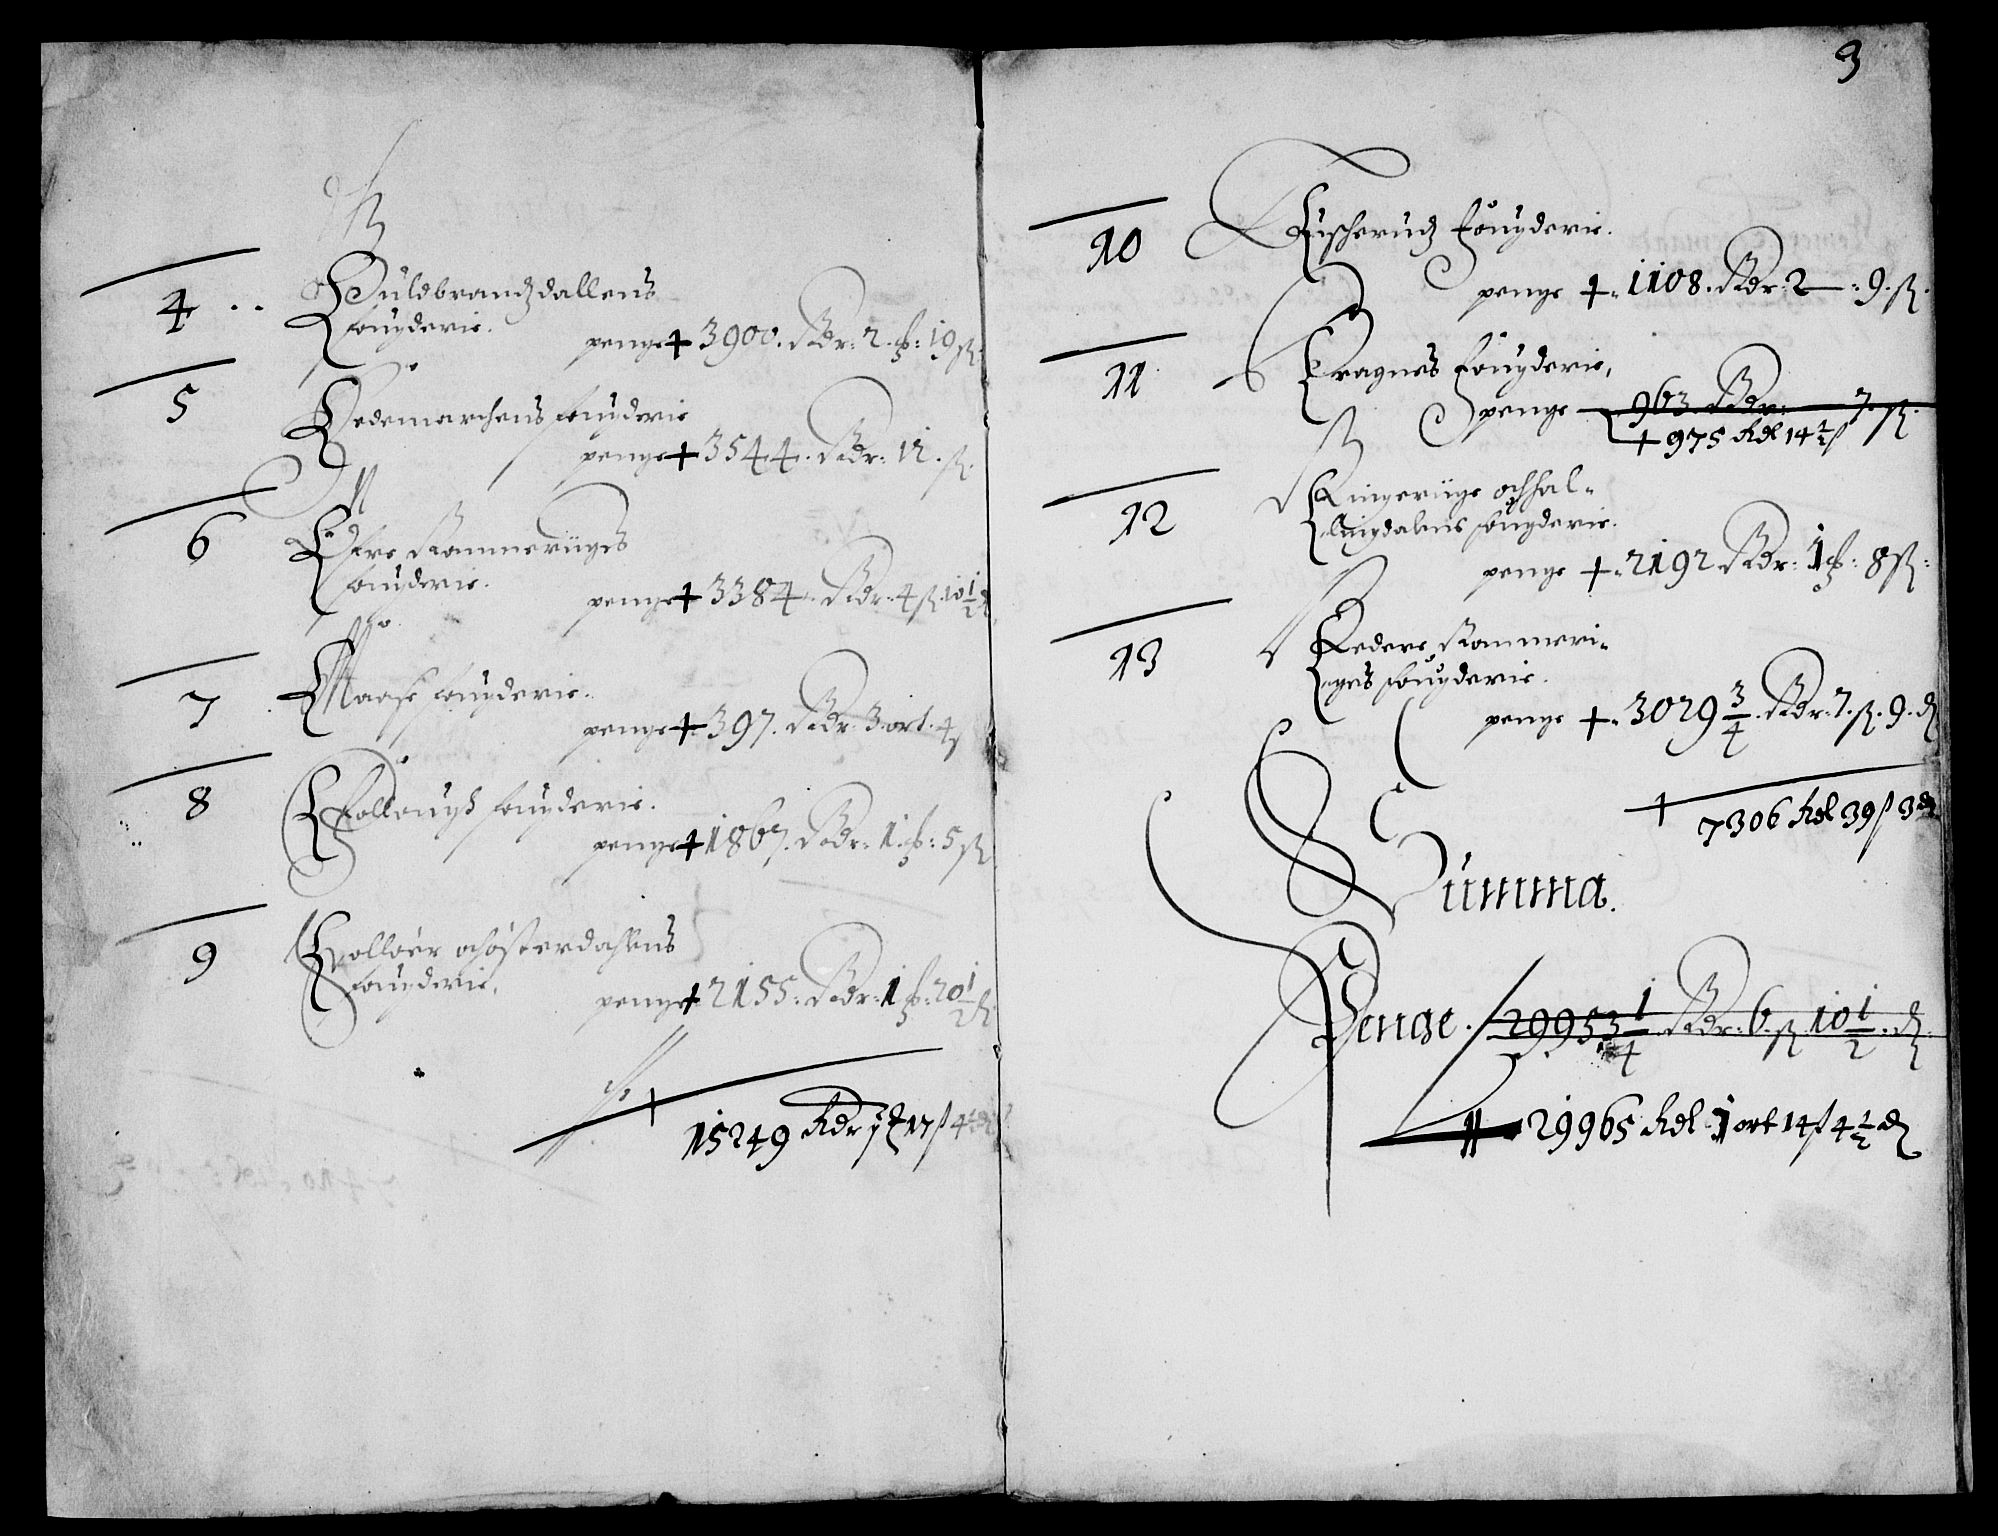 4 Guldbrandzdallens
fougderie.
penge + 3900. Rdr: 2. : 19 ß.
5 Hedemarchens fougderie
penge + 3544. Rdr: 12. ß.
6 Øfre Rommeriiges
fougderie.
penge + 3384. Rdr. 4 ß. 10 1/2 d
7 fougderie.
penge + 397. Rdr. 3 ort. 4 ß
8 fougderie.
penge + 1867. Rdr. 1. : 5 ß
9 Solløer och østerdahlens
fougderie.
penge + 2155. Rdr. 1 : 20 1/2 d
+ 15249 Rdr 17 ß 4 1/2 d
3
10 Buscherudz fougderie.
penge + 1108. Rdr: 2 : 9. ß.
11 Eragnes fougderie,
penge 963. Rdr: 7. ß.
+ 975 Rdl 14 1/2 ß
12 Ringeriige och Hal-
lingdalens fougderie.
penge + 2192 Rdr: 1 : 8 ß:
13 Nedere Rommeri-
iges fougderie.
penge + 3029 3/4. Rdr. 7. ß. 9. d
+ 7306 Rdl 39 ß 3 d
Summa.
Penge. 29953 1/4 Rdr. 6. ß 10 1/2. d
29965 Rdl 1 ort 14 ß 4 1/2 d